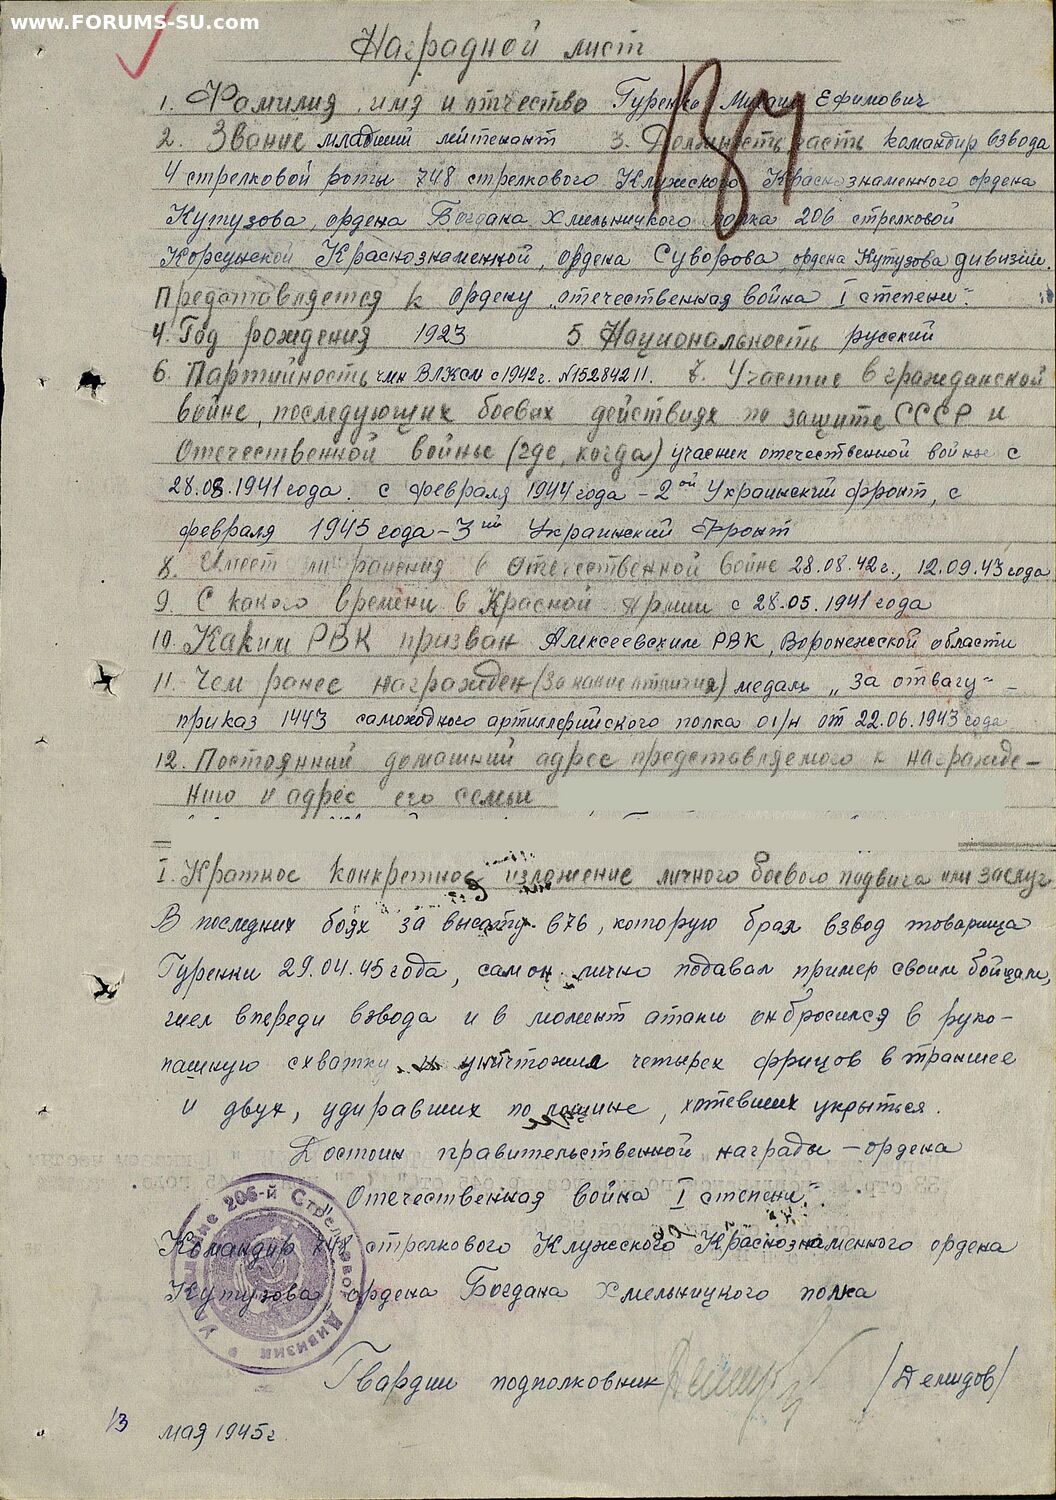 www.FORUMS-SU.com
Наградной лист
1. Фамилия, имя и отчество Гуренко Михаил Ефимович
2. Звание младший лейтенант 3. Должность, часть командир взвода
4 стрелковой роты 748 стрелкового Клужского Краснознаменного ордена
Кутузова, ордена Богдана Хмельницкого полка 206 стрелковой
Корсунской Краснознаменной, ордена Суворова, ордена Кутузова дивизии.
Представляется к ордену „отечественная война I степени“
4. Год рождения 1923 5 Национальность русский
6. Партийность член ВЛКСМ с 1942г. №15284211. 7. Участие в гражданской
войне, последующих боевых действиях по защите СССР и
Отечественной войне (где, когда) участник отечественной войны с
28.08.1941 года. с февраля 1944 года - 2ой Украинский фронт, с
февраля 1945 года - 3ий Украинский Фронт
8. Имеет ли ранения в Отечественной войне 28.08.42г., 12.09.43 года
9. С какого времени в Красной Армии с 28.05.1941 года
10. Каким РВК призван Алексеевским РВК, Воронежской области
11. Чем ранее награжден (за какие отличия) медаль „За отвагу“ –
приказ 1443 самоходного артиллерийского полка 01/н от 22.06.1943 года
12. Постоянный домашний адрес представляемого к награжде-
нию и адрес его семьи
I. Краткое конкретное изложение личного боевого подвига или заслуг
В последних боях за высоту 676, которую брал взвод товарища
Гуренки 29.04.45 года, сам он лично подавал пример своим бойцам,
шел впереди взвода и в момент атаки он бросился в руко-
пашную схватку и уничтожил четырех фрицов в траншее
и двух, удиравших по лощине, хотевших укрыться.
Достоин правительственной награды – ордена
„Отечественная война I степени“.
Командир 748 стрелкового Клужского Краснознаменного ордена
Кутузова ордена Богдана Хмельницкого полка
Гвардии подполковник /Демидов/
13 мая 1945г.
Управление 206-й Стрелковой Дивизии